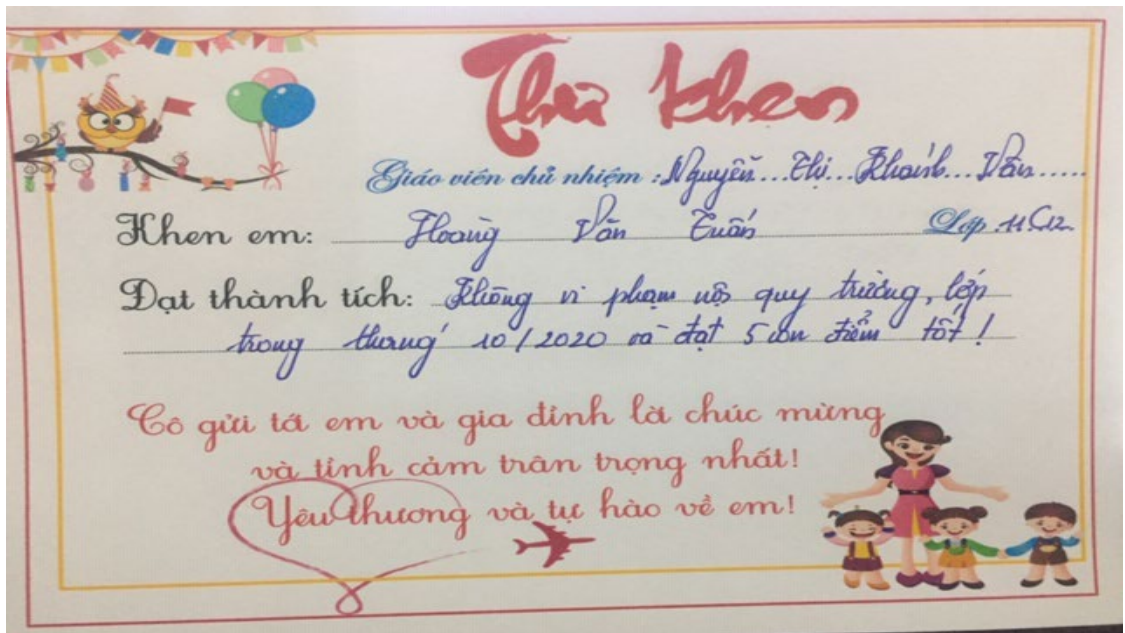 Thư khen
Giáo viên chủ nhiệm : Nguyễn...Thị...Khánh...Vân.....
Khen em: Hoàng Văn Tuấn Lớp 11C12
Đạt thành tích: Không vi phạm nội quy trường, lớp
trong tháng 10/2020 và đạt 5 con điểm tốt!
Cô gửi tới em và gia đình lời chúc mừng
và tình cảm trân trọng nhất!
Yêu thương và tự hào về em!